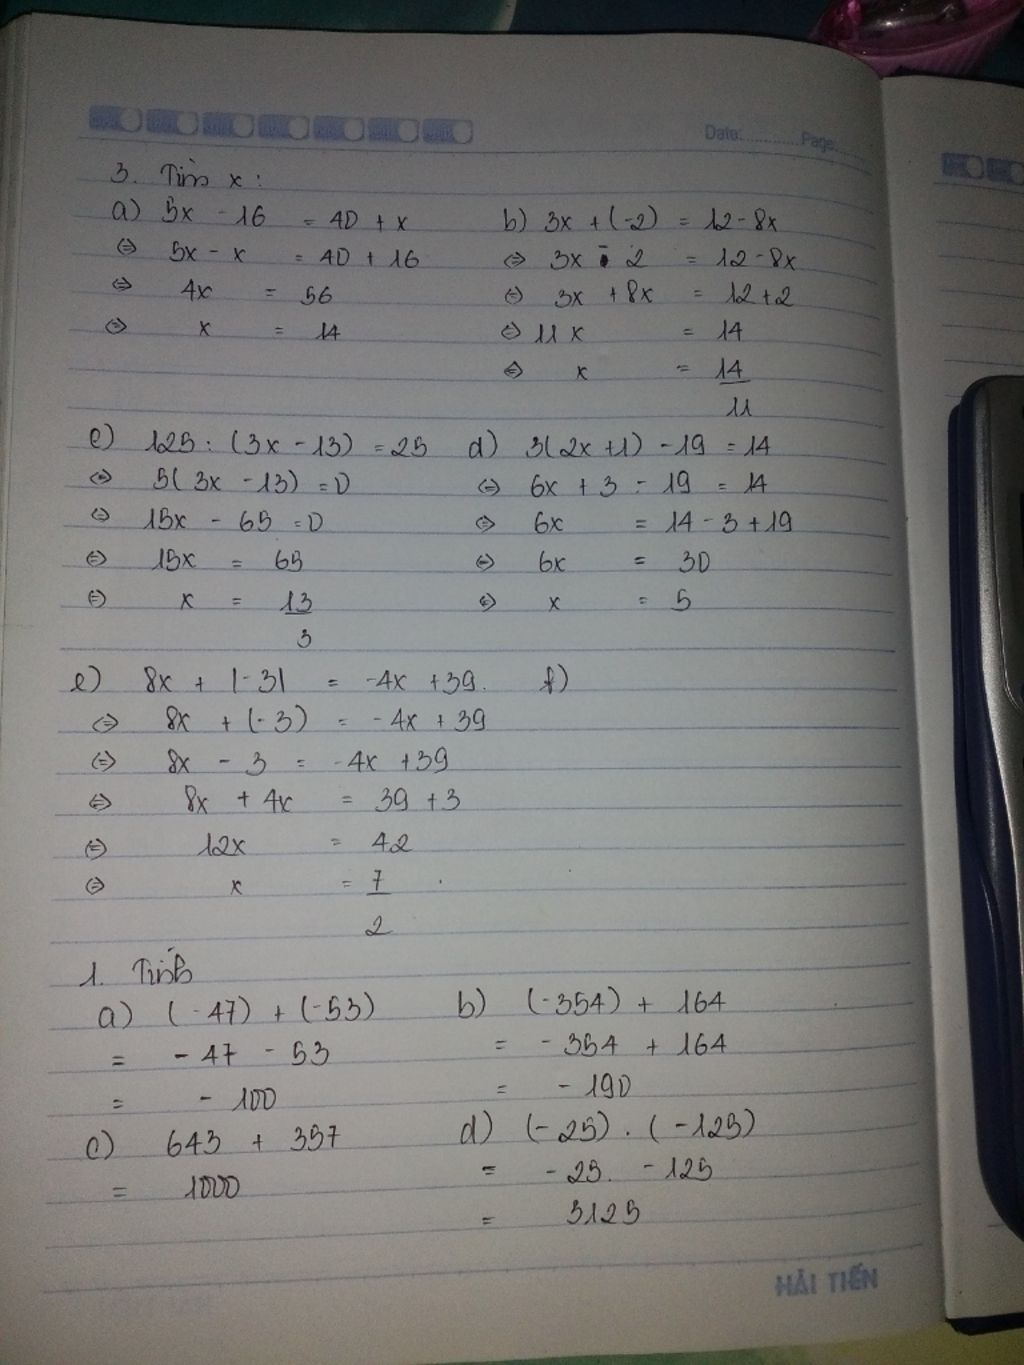 Date:............Page:
3. Tìm x:
a) 5x - 16 = 40 + x b) 3x + (-2) = 12 - 8x
⇔ 5x - x = 40 + 16 ⇔ 3x - 2 = 12 - 8x
⇔ 4x = 56 ⇔ 3x + 8x = 12 + 2
⇔ x = 14 ⇔ 11x = 14
⇔ x = 14/11
c) 125 : (3x - 13) = 25 d) 3(2x + 1) - 19 = 14
⇔ 5(3x - 13) = 0 ⇔ 6x + 3 - 19 = 14
⇔ 15x - 65 = 0 ⇔ 6x = 14 - 3 + 19
⇔ 15x = 65 ⇔ 6x = 30
⇔ x = 13/3 ⇔ x = 5
e) 8x + |-3| = -4x + 39. f)
⇔ 8x + (-3) = -4x + 39
⇔ 8x - 3 = -4x + 39
⇔ 8x + 4x = 39 + 3
⇔ 12x = 42
⇔ x = 7/2
1. Tính
a) (-47) + (-53) b) (-354) + 164
= -47 - 53 = -354 + 164
= -100 = -190
c) 643 + 357 d) (-25) . (-125)
= 1000 = -25 . -125
= 3125
HẢI TIẾN